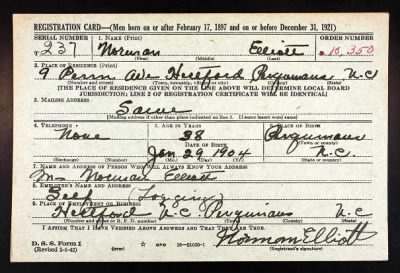 REGISTRATION CARD—(Men born on or after February 17, 1897 and on or before December 31, 1921)
SERIAL NUMBER 1. NAME (Print) ORDER NUMBER
T 237 Norman Elliott 10,350
(First) (Middle) (Last)
2. PLACE OF RESIDENCE (Print)
9 Penn Ave Hertford Perquimans N.C
(Number and street) (Town, township, village or city) (County) (State)
[THE PLACE OF RESIDENCE GIVEN ON THE LINE ABOVE WILL DETERMINE LOCAL BOARD
JURISDICTION; LINE 2 OF REGISTRATION CERTIFICATE WILL BE IDENTICAL]
3. MAILING ADDRESS
Same
(Mailing address if other than place indicated on line 2. If same insert word same)
4. TELEPHONE 5. AGE IN YEARS 6. PLACE OF BIRTH
None 38 Perquimans
DATE OF BIRTH (Town or county)
Jan 29 1904 N.C.
(Exchange) (Number) (Mo.) (Day) (Yr.) (State or country)
7. NAME AND ADDRESS OF PERSON WHO WILL ALWAYS KNOW YOUR ADDRESS
Mrs Norman Elliott
8. EMPLOYER'S NAME AND ADDRESS
Self Logging
9. PLACE OF EMPLOYMENT OR BUSINESS
Hertford N.C. Perquimans N.C
(Number and street or R. F. D. number) (Town) (County) (State)
I AFFIRM THAT I HAVE VERIFIED ABOVE ANSWERS AND THAT THEY ARE TRUE.
D. S. S. Form 1
(Revised 1-1-42) (over) GPO 16—21630-1
Norman Elliott
(Registrant's signature)